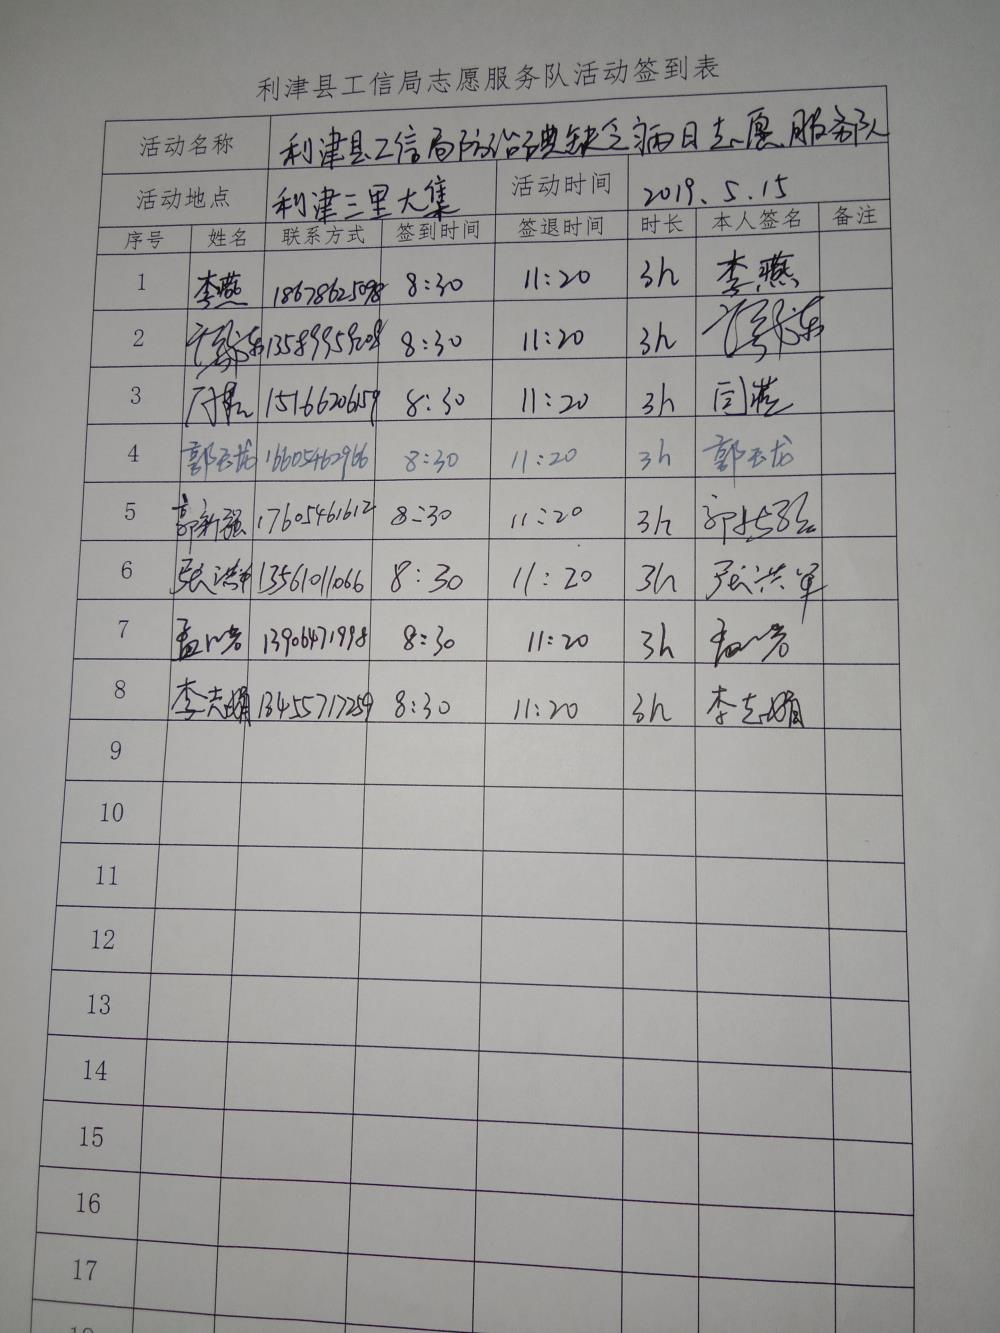 利津县工信局志愿服务队活动签到表
活动名称 利津县工信局防治碘缺乏病日志愿服务队
活动地点 利津三里大集 活动时间 2019.5.15
序号 姓名 联系方式 签到时间 签退时间 时长 本人签名 备注
1 李燕 18678625098 8:30 11:20 3h 李燕
2 13589959208 8:30 11:20 3h
3 15166206159 8:30 11:20 3h
4 郭玉龙 16605462966 8:30 11:20 3h 郭玉龙
5 郭新强 17605461612 8:30 11:20 3h 郭新强
6 张洪军 13561011066 8:30 11:20 3h 张洪军
7 13906471998 8:30 11:20 3h
8 李志娟 13455717259 8:30 11:20 3h 李志娟
9
10
11
12
13
14
15
16
17